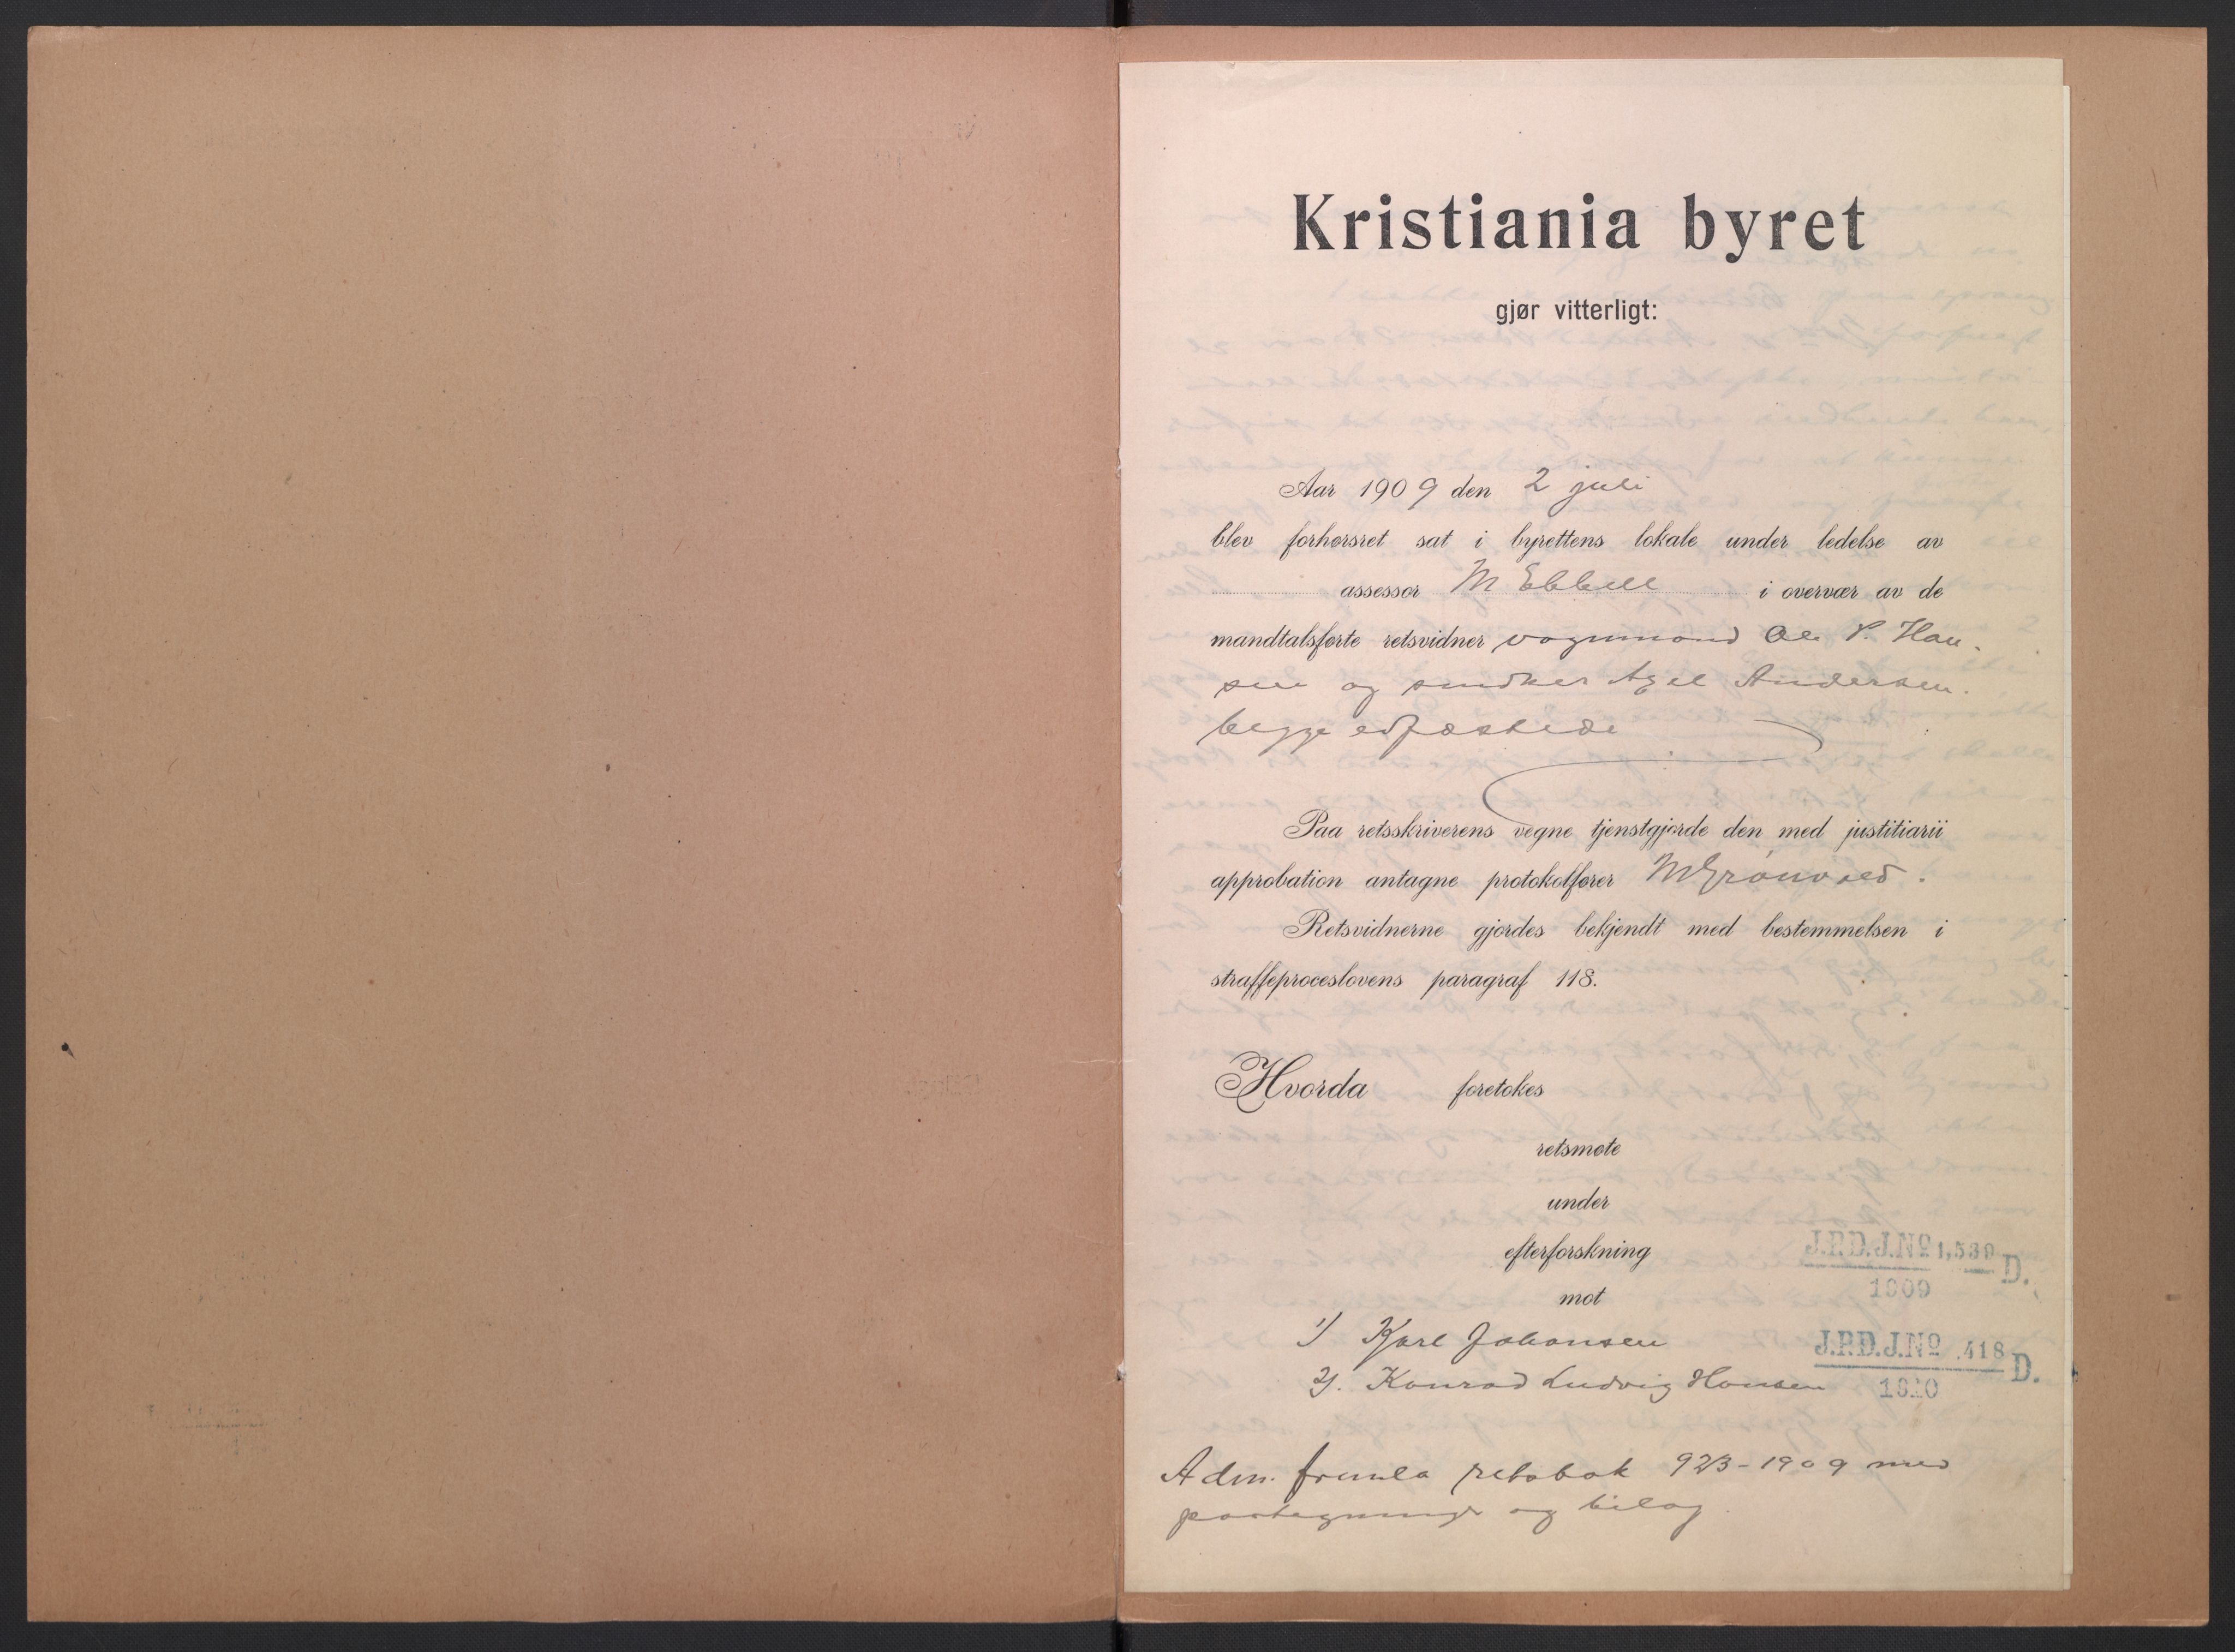 Kristiania byret
gjør vitterligt:
Aar 1909 den 2 juli
blev forhørsret sat i byrettens lokale under ledelse av
assessor M Ebbell i overvær av de
mandtalsførte retsvidner vognmand Ole P. Han-
sen og snedker Axel Andersen.
begge edfæstede
Paa retsskriverens vegne tjenstgjorde den med justitiarii
approbation antagne protokolfører M Grønvold.
Retsvidnerne gjordes bekjendt med bestemmelsen i
straffeproceslovens paragraf 118.
Hvorda foretokes
retsmøte
under
efterforskning
J.P.D.J.No 1,539 D.
1909
mot
1) Karl Johansen
J.P.D.J.No 418 D.
1910
2). Konrad Ludvig Hansen
Adm. fremla retsbok 923-1909 med
paategninger og bilag